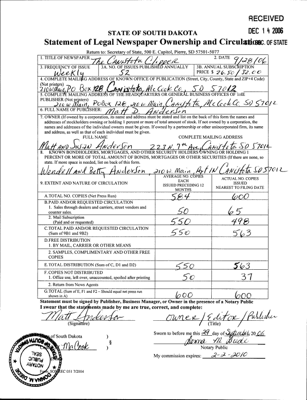 RECEIVED
DEC 14 2006
STATE OF SOUTH DAKOTA
Statement of Legal Newspaper Ownership and Circulation
SEC. OF STATE
Return to: Secretary of State, 500 E. Capitol, Pierre, SD 57501-5077
1. TITLE OF NEWSPAPER The Canistota Clipper
2. DATE 9/28/06
3. FREQUENCY OF ISSUE Weekly
3A. NO. OF ISSUES PUBLISHED ANNUALLY 52
3B. ANNUAL SUBSCRIPTION PRICE $
4. COMPLETE MAILING ADDRESS OF KNOWN OFFICE OF PUBLICATION (Street, City, County, State and ZIP+4 Code)
(Not printers) 210 W Main, PO Box 128 Canistota, McCook Co., SD 57012
5. COMPLETE MAILING ADDRESS OF THE HEADQUARTERS OF GENERAL BUSINESS OFFICES OF THE
PUBLISHER (Not printer)
6. FULL NAME OF PUBLISHER: Matt D. Anderson
7. OWNER (If owned by a corporation, its name and address must be stated and
addresses of stockholders owning or holding 1 percent or more of total amount of stock. If not owned by a corporation, the
names and addresses of the individual owners must be given. If owned by a partnership or other unincorporated firm, its name
and address, as well as that of each individual must be given.
FULL NAME COMPLETE MAILING ADDRESS
Matt and Susan Anderson Canistota SD 57012
8. KNOWN BONDHOLDERS, MORTGAGES, AND OTHER SECURITY HOLDERS OWNING OR HOLDING 1
PERCENT OR MORE OF TOTAL AMOUNT OF BONDS, MORTGAGES OR OTHER SECURITIES (If there are none, so
state. If more space is needed, list on back of this form.
Wendell and Betty Anderson, 210 W Main Canistota SD 57012
9. EXTENT AND NATURE OF CIRCULATION
AVERAGE NO. COPIES EACH ISSUED PRECEDING 12 MONTHS
ACTUAL NO. COPIES ISSUED NEAREST TO FILING DATE
A. TOTAL NO. COPIES (Net Press Run) 584 600
B. PAID AND/OR REQUESTED CIRCULATION
1. Sales through dealers and carriers, street vendors and
counter sales 50 65
2. Mail Subscription
(Paid and or requested) 550 498
C. TOTAL PAID AND/OR REQUESTED CIRCULATION
(Sum of 9B1 and 9B2) 550 563
D. FREE DISTRIBUTION
1. BY MAIL, CARRIER OR OTHER MEANS
2. SAMPLES, COMPLIMENTARY AND OTHER FREE
COPIES
E. TOTAL DISTRIBUTION (Sum of C, D1 and D2) 550 563
F. COPIES NOT DISTRIBUTED
1. Office use, left over, unaccounted, spoiled after printing 50 37
2. Return from News Agents
G. TOTAL (Sum of E, F1 and F2 - Should equal net press run
shown in A) 600 600
Statement must be signed by Publisher, Business Manager, or Owner in the presence of a Notary Public
I swear that the statements made by me are true, correct, and complete:
Matt Anderson Owner / Editor / Publisher
(Signature) (Title)
of South Dakota
McCook
Sworn to before me this 28 day of September 2006
Notary Public
My commission expires: 2-2-2010